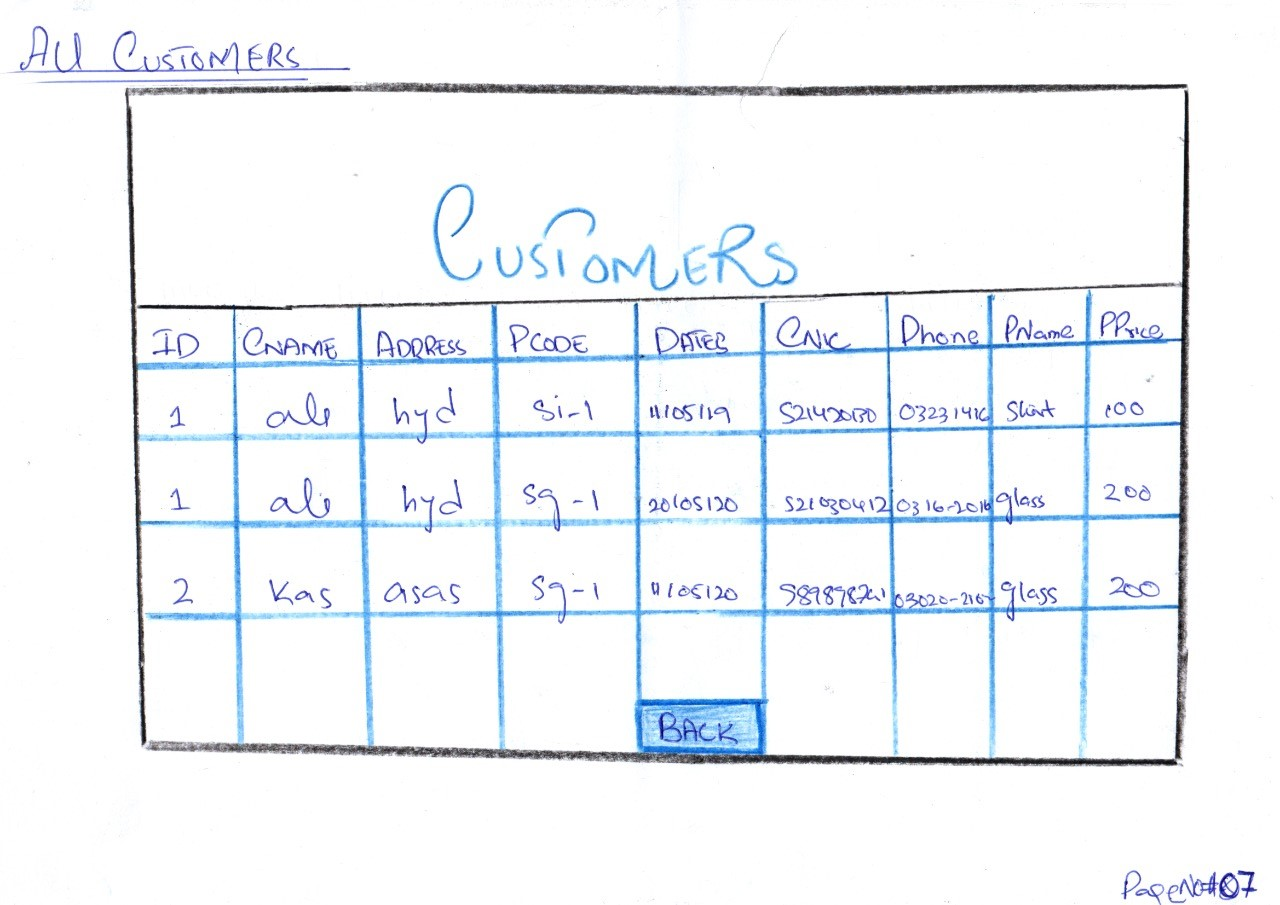 All CUSTOMERS
CUSTOMERS
ID CNAME ADDRESS PCODE DATES CNIC Phone PName PPrice
1 ali hyd Si-1 11/05/119 0323141 Shirt 100
1 ali hyd Sg-1 20/05/120 521030412 0316-2016 glass 200
2 Kas asas Sg-1 11/05/120 03020-210 glass 200
BACK
Page No# 07